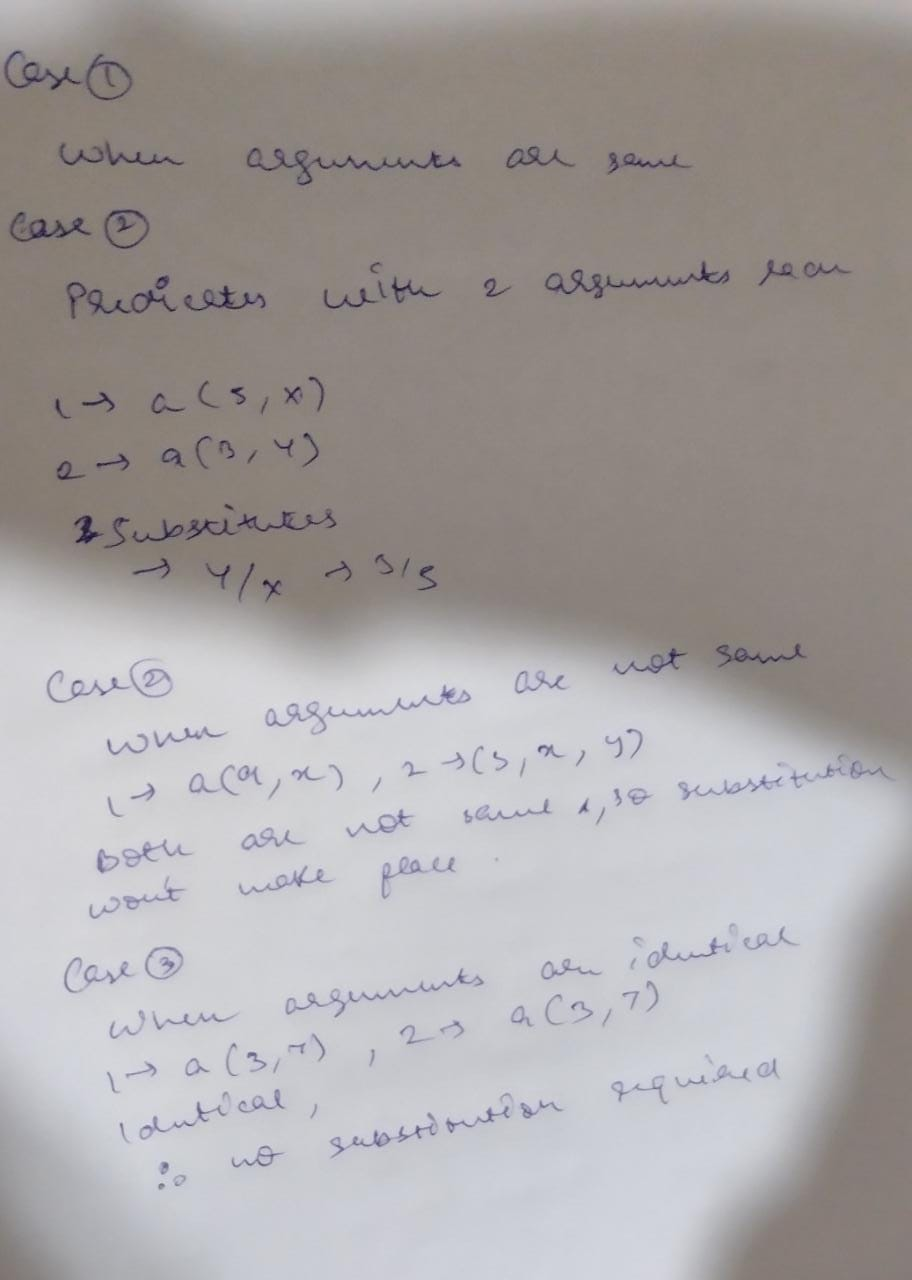 Case ①
When arguments are same
Case ②
Predicates with 2 arguments each
1 → a(5, x)
2 → a(3, y)
Substitutes
→ y/x → 3/5
Case ②
When arguments are not same
1 → a(a, x), 2 → (5, x, y)
Both are not same, so substitution
won't make place.
Case ③
When arguments are identical
1 → a(3, 7), 2 → a(3, 7)
Identical,
∴ no substitution required